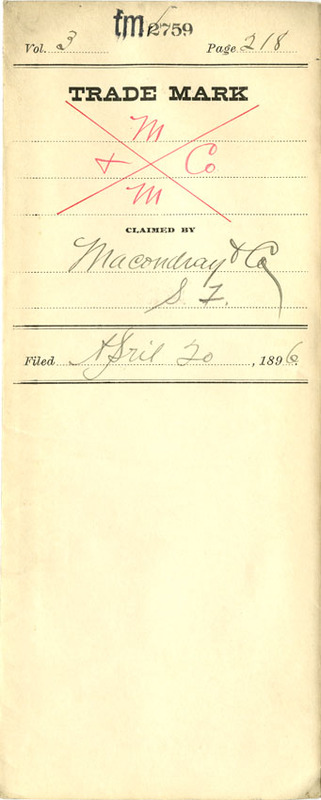 tm 2759
Vol. 3 Page 218
TRADE MARK
M
& Co
M
CLAIMED BY
Macondray & Co
S. F.
Filed April 20, 1896